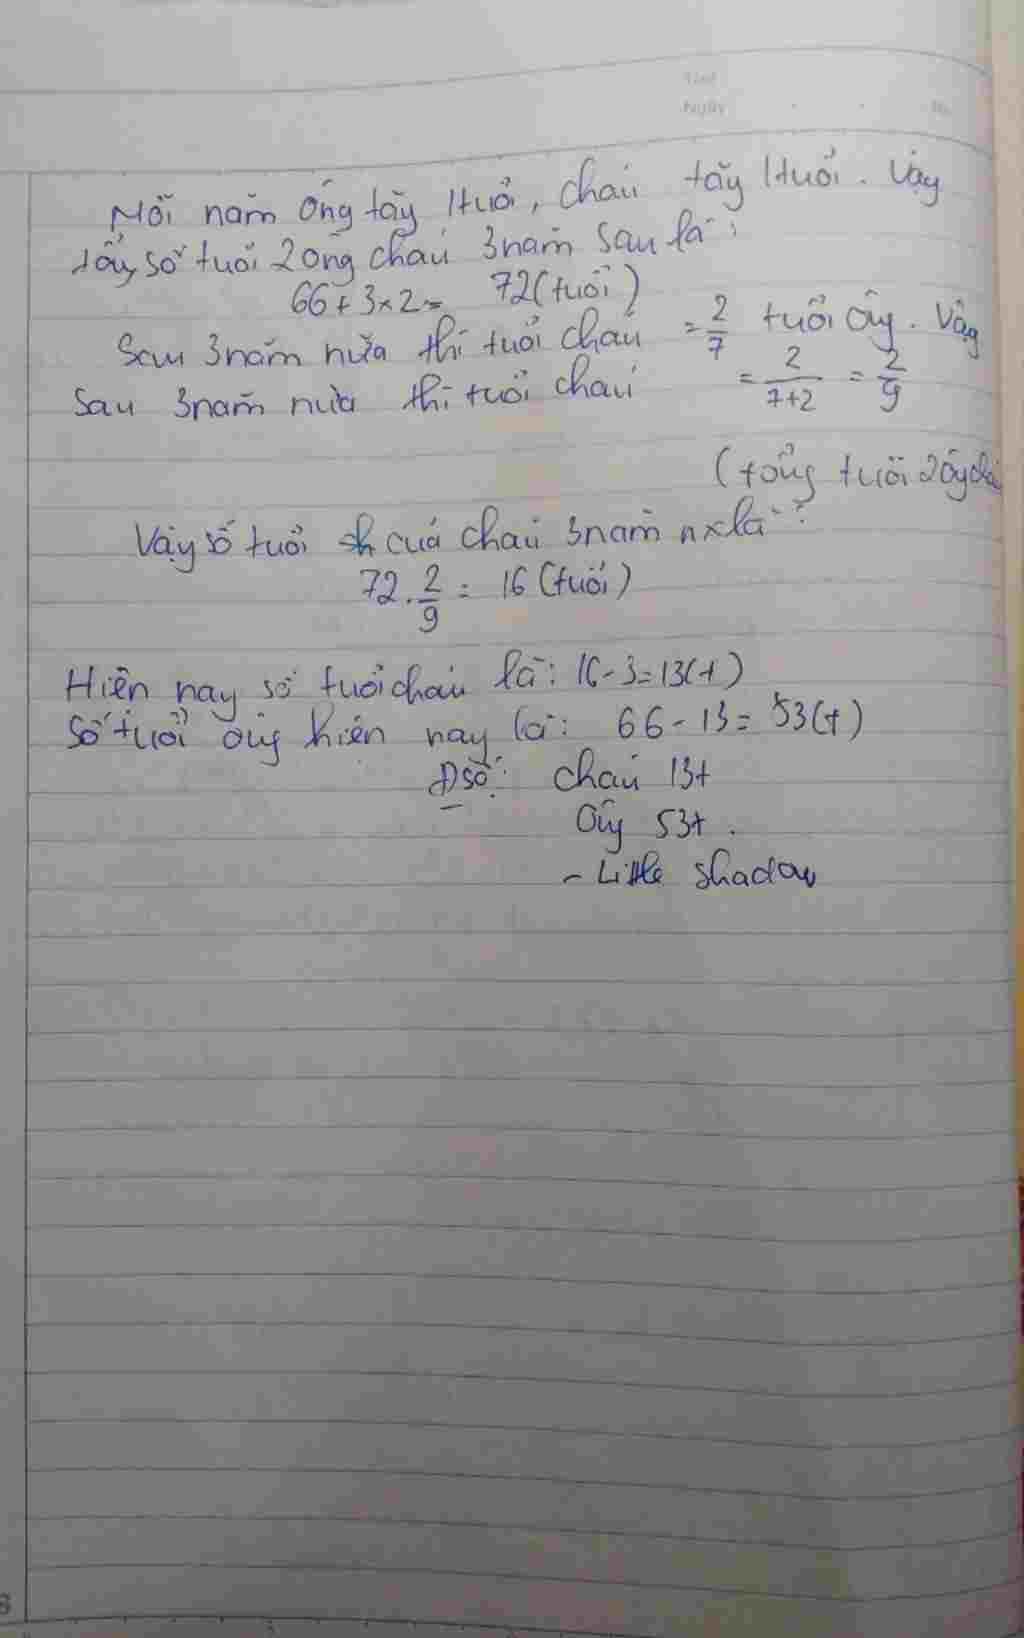 Ngày
No.
Mỗi năm ông tăg 1tuổi, cháu tăg 1tuổi. Vậy
tổg số tuổi 2 ông cháu 3 năm sau là:
66 + 3 × 2 = 72 (tuổi)
Sau 3 năm nữa thì tuổi cháu = 2/7 tuổi ôg. Vậy
sau 3 năm nữa thì tuổi cháu = 2/7+2 = 2/9
(tổng tuổi 2 ôg
Vậy số tuổi của cháu 3 năm nx là:
72 . 2/9 = 16 (tuổi)
Hiện nay số tuổi cháu là: 16 - 3 = 13 (t)
Số tuổi ôg hiện nay là: 66 - 13 = 53 (t)
Đ số: cháu 13t
Ôg 53t.
- Little shadow